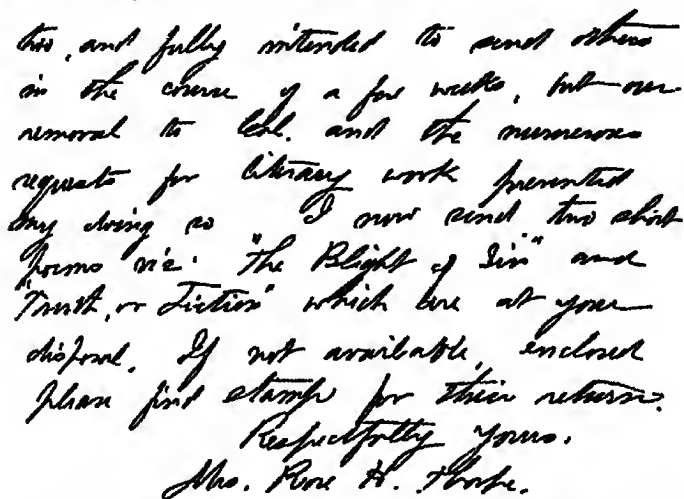 two, and fully intended to send others
in the course of a few weeks, but our
removal to Cal. and the numerous
requests for literary work prevented
my doing so. I now send two short
poems viz. "The Blight of Sin" and
"Truth, or Fiction" which are at your
disposal. If not available, enclosed
please find stamp for their return.
Respectfully yours.
Mrs. Rose H. Thorpe.